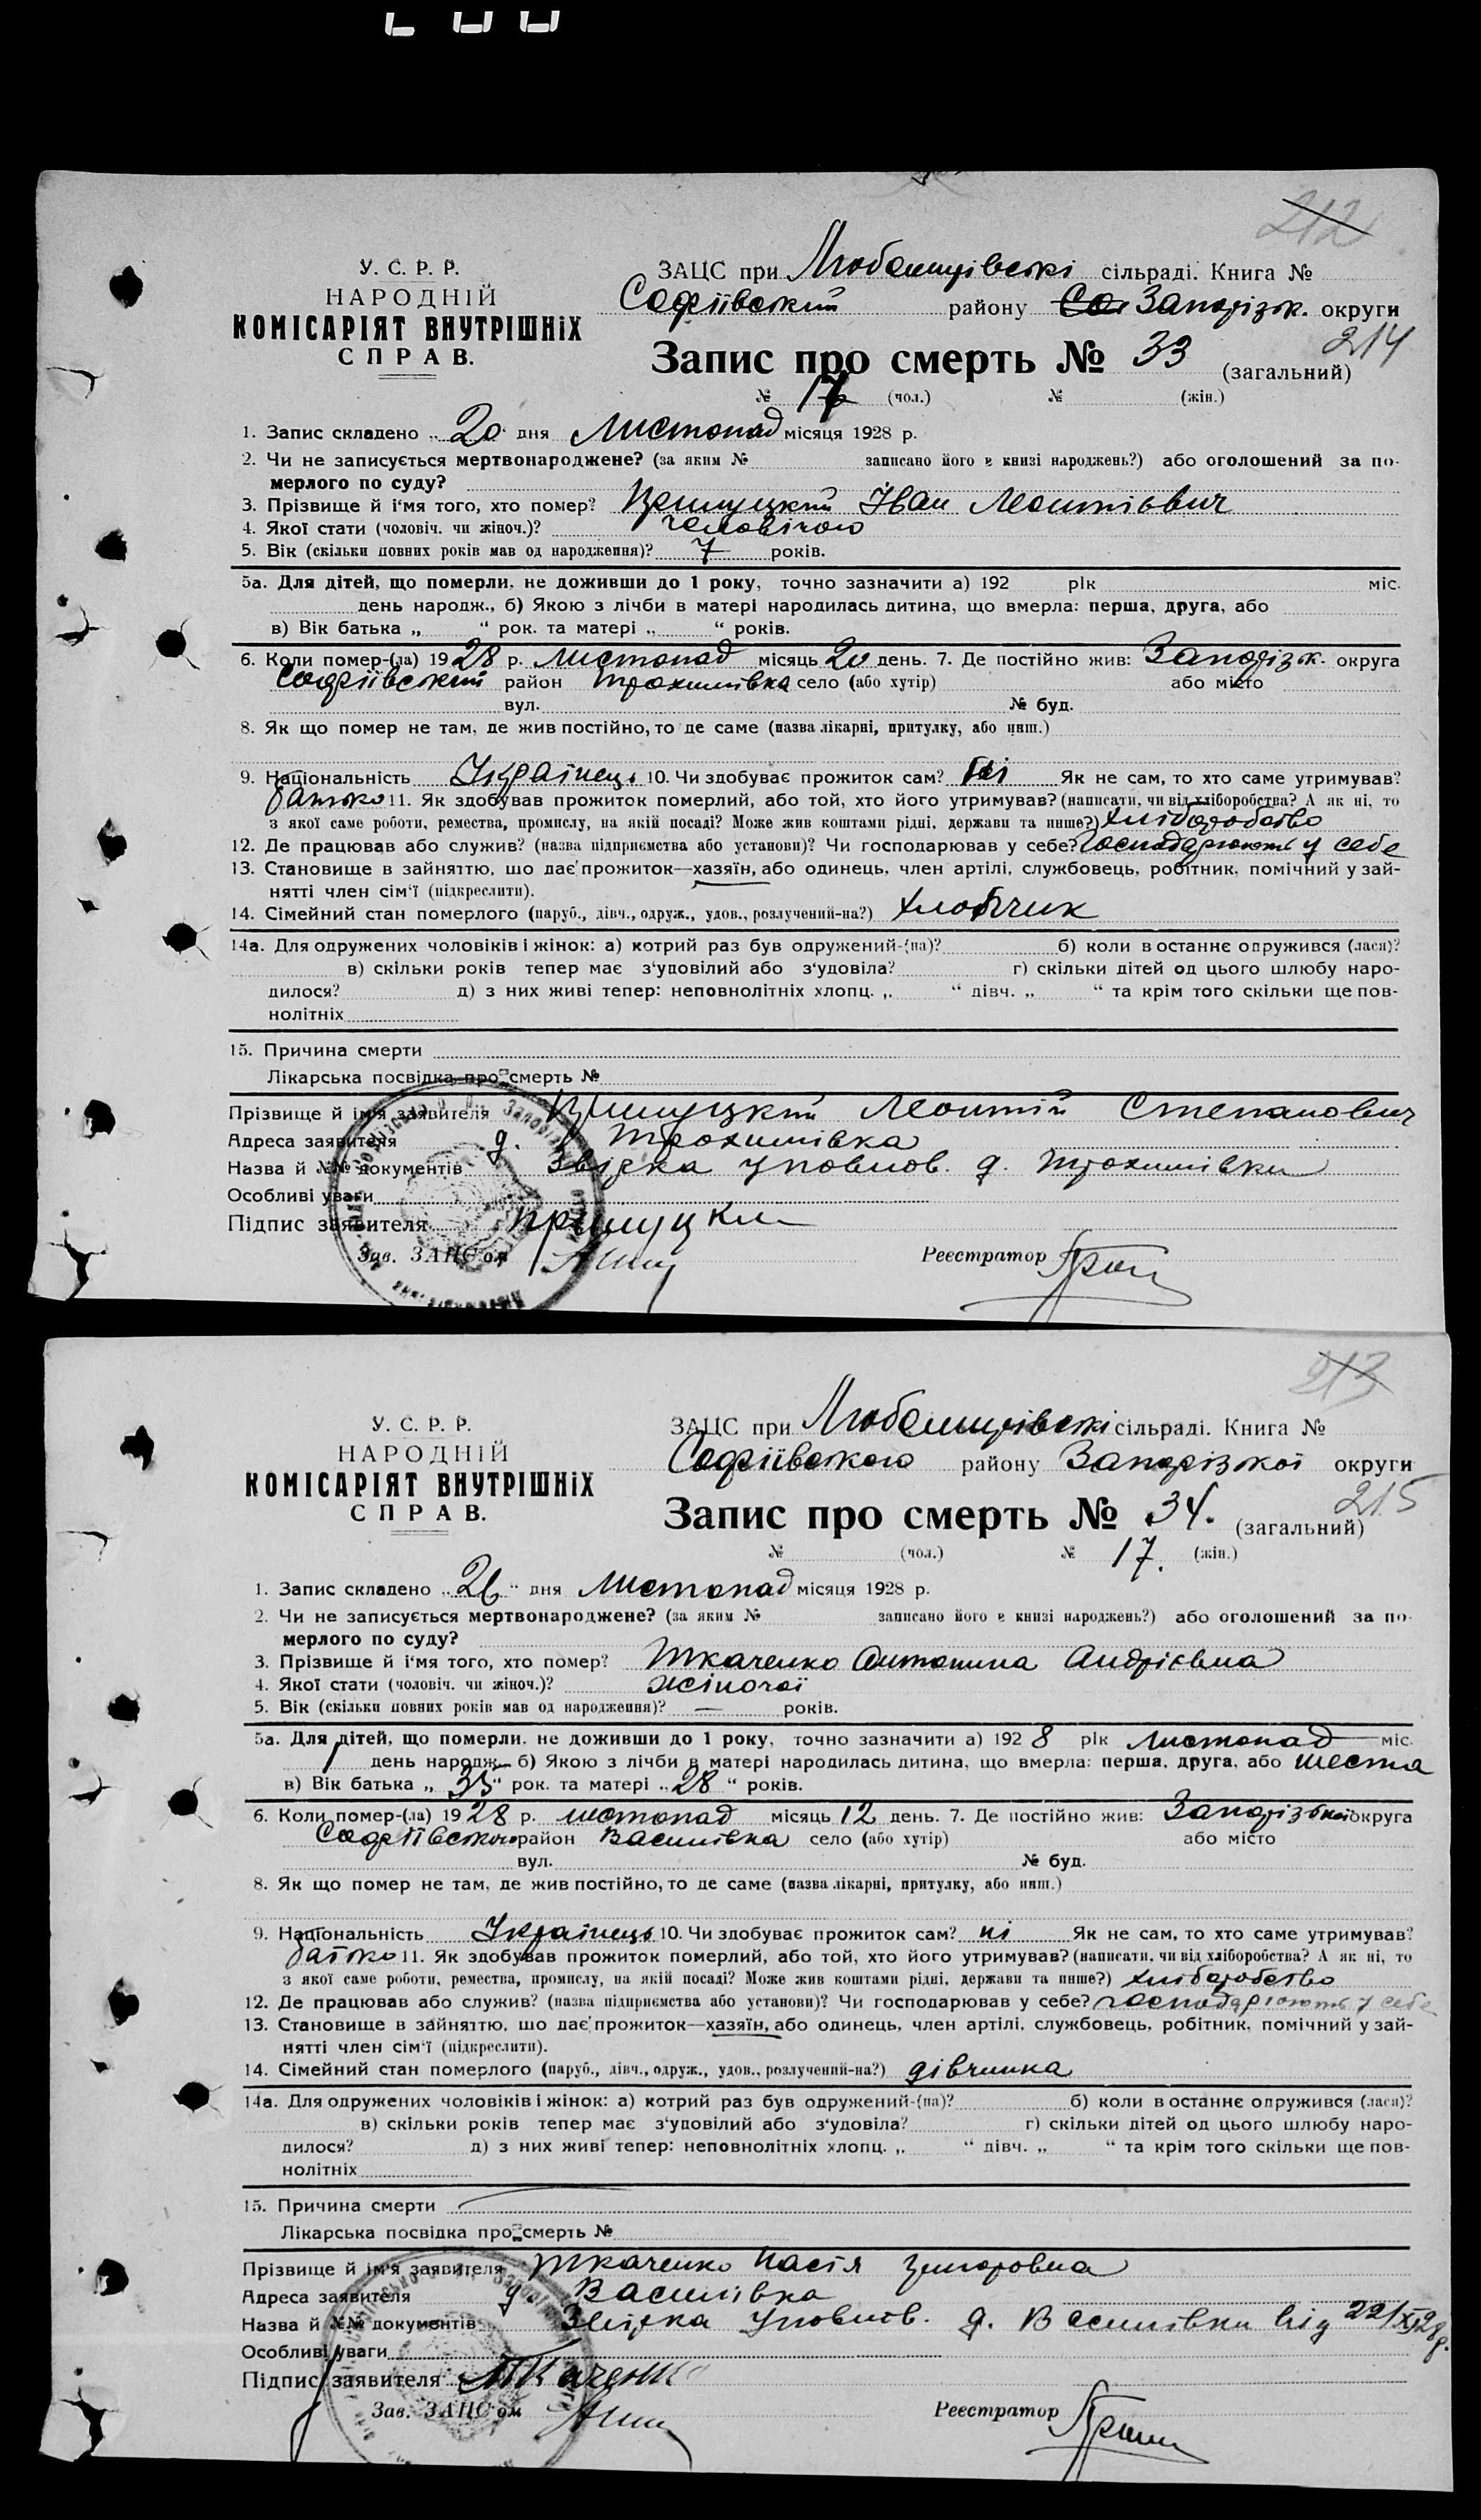 212
У. С. Р. Р.
НАРОДНІЙ
КОМІСАРІЯТ ВНУТРІШНІХ
СПРАВ.
ЗАЦС при Любомирівскі сільраді. Книга №
Софіївский району Запоріжк. округи
214
Запис про смерть № 33 (загальний)
№ 17 (чол.) № (жін.)
1. Запис складено „ 20 " дня Листопад місяця 1928 р.
2. Чи не записується мертвонароджене? (за яким № записано його в книзі народжень?) або оголошений за по-
мерлого по суду?
3. Прізвище й і'мя того, хто помер? Прилуцкий Іван Леонтієвич
4. Якої стати (чоловіч. чи жіноч.)? чоловічою
5. Вік (скільки повних років мав од народження)? 7 років.
5а. Для дітей, що померли, не доживши до 1 року, точно зазначити а) 192 рік міс.
день народж., б) Якою з лічби в матері народилась дитина, що вмерла: перша, друга, або
в) Вік батька „ " рок. та матері „ " років.
6. Коли помер-(ла) 1928 р. листопад місяць 20 день. 7. Де постійно жив: Запоріжк. округа
Софіївский район Трохимівка село (або хутір) або місто
вул. № буд.
8. Як що помер не там, де жив постійно, то де саме (назва лікарні, притулку, або инш.)
9. Національність Українець 10. Чи здобуває прожиток сам? ні Як не сам, то хто саме утримував?
батько 11. Як здобував прожиток померлий, або той, хто його утримував? (написати, чи від хліборобства? А як ні, то
з якої саме роботи, ремества, промислу, на якій посаді? Може жив коштами рідні, держави та инше?) хліборобство
12. Де працював або служив? (назва підприємства або установи)? Чи господарював у себе? господарюють у себе
13. Становище в зайняттю, що дає прожиток—хазяїн, або одинець, член артілі, службовець, робітник, помічний у зай-
нятті член сім'ї (підкреслити).
14. Сімейний стан померлого (паруб., дівч., одруж., удов., розлучений-на?) хлопчик
14а. Для одружених чоловіків і жінок: а) котрий раз був одружений-(на)? б) коли в останнє одружився (лася)?
в) скільки років тепер має з'уповілий або з'удовіла? г) скільки дітей од цього шлюбу наро-
дилося? д) з них живі тепер: неповнолітніх хлопц. „ " дівч. „ " та крім того скільки ще пов-
нолітніх
15. Причина смерти
Лікарська посвідка про смерть №
Прізвище й ім'я заявителя Прилуцкий Леонтій Степанович
Адреса заявителя д. Трохимівка
Назва й №№ документів Звідка уповнов. д. Трохимівки
Особливі уваги
Підпис заявителя Прилуцки
Зав. ЗАЦС'ом Реєстратор
213
У. С. Р. Р.
НАРОДНІЙ
КОМІСАРІЯТ ВНУТРІШНІХ
СПРАВ.
ЗАЦС при Любомирівскі сільраді. Книга №
Софіївского району Запорізкої округи
215
Запис про смерть № 34. (загальний)
№ (чол.) № 17. (жін.)
1. Запис складено „ 26 " дня Листопад місяця 1928 р.
2. Чи не записується мертвонароджене? (за яким № записано його в книзі народжень?) або оголошений за по-
мерлого по суду?
3. Прізвище й і'мя того, хто помер? Ткаченко Антонина Андрієвна
4. Якої стати (чоловіч. чи жіноч.)? жіночої
5. Вік (скільки повних років мав од народження)? — років.
5а. Для дітей, що померли, не доживши до 1 року, точно зазначити а) 1928 рік листопад міс.
1 день народж. б) Якою з лічби в матері народилась дитина, що вмерла: перша, друга, або шеста
в) Вік батька „ 35 " рок. та матері „ 28 " років.
6. Коли помер-(ла) 1928 р. листопад місяць 12 день. 7. Де постійно жив: Запорізкої округа
Софіївского район Василівка село (або хутір) або місто
вул. № буд.
8. Як що помер не там, де жив постійно, то де саме (назва лікарні, притулку, або инш.)
9. Національність Українець 10. Чи здобуває прожиток сам? ні Як не сам, то хто саме утримував?
батько 11. Як здобував прожиток померлий, або той, хто його утримував? (написати, чи від хліборобства? А як ні, то
з якої саме роботи, ремества, промислу, на якій посаді? Може жив коштами рідні, держави та инше?) хліборобство
12. Де працював або служив? (назва підприємства або установи)? Чи господарював у себе? господарюють у себе
13. Становище в зайняттю, що дає прожиток—хазяїн, або одинець, член артілі, службовець, робітник, помічний у зай-
нятті член сім'ї (підкреслити).
14. Сімейний стан померлого (паруб., дівч., одруж., удов., розлучений-на?) дівчинка
14а. Для одружених чоловіків і жінок: а) котрий раз був одружений-(на)? б) коли в останнє одружився (лася)?
в) скільки років тепер має з'уповілий або з'удовіла? г) скільки дітей од цього шлюбу наро-
дилося? д) з них живі тепер: неповнолітніх хлопц. „ " дівч. „ " та крім того скільки ще пов-
нолітніх
15. Причина смерти
Лікарська посвідка про смерть №
Прізвище й ім'я заявителя Ткаченко Настя
Адреса заявителя д. Василівка
Назва й №№ документів Звідка уповнов. д. Василівки від 22/XI 28 р.
Особливі уваги
Підпис заявителя Ткаченко
Зав. ЗАЦС'ом Реєстратор